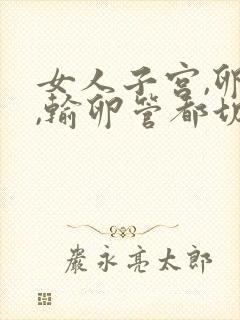 女人子宫,卵
,输卵管都切
嚴永亮太郎